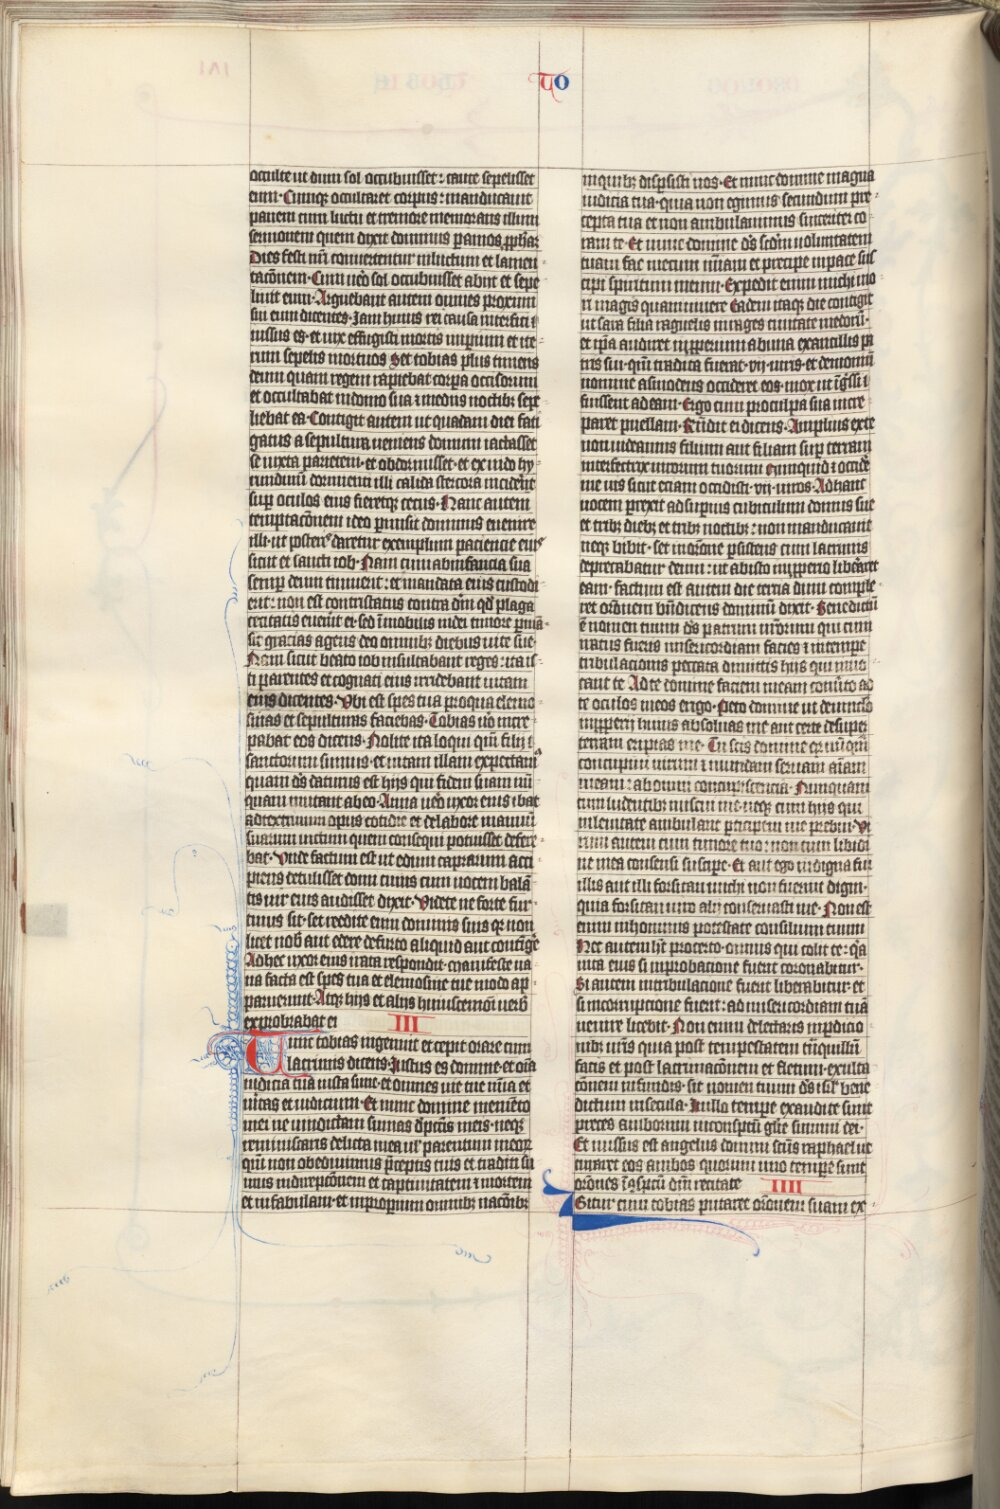 To
occulte ut dum sol occubuisset : caute sepelisset
eum · Cumqꝫ occultaret corpus : manducauit
panem cum luctu et tremore memorans illum
sermonem quem dixit dominus p amos pphaꝫ
Dies festi nri conuertentur in luctum et lamen
tacōnem · Cum uero sol occubuisset abiit et sepe
liuit eum · Arguebant autem omnes proximi
sui eum dicentes · Iam huius rei causa interfici i
iussus es · et uix effugisti mortis imperium et ite
rum sepelis mortuos Set tobias plus timens
deum quam regem rapiebat corpa occisorum
et occultabat in domo sua ⁊ mediis noctibꝫ sepe
liebat ea · Contigit autem ut quadam die fati
gatus a sepultura ueniens domum iactasset
se iuxta parietem · et obdormisset · et ex nido hy
rundinū dormienti illi calida stercora inciderēt
sup oculos eius fieretqꝫ cecus · Hanc autem
temptacōnem ideo pmisit dominus euenire
illi · ut posteris daretur exemplum paciencie eius
sicut et sancti iob · Nam cum ab infancia sua
semp deum timuerit : et mandata eius custodi
erit : non est contristatus contra dm qd plaga
cecitatis euenit ei · sed immobilis in dei timore pmā
sit gracias agens deo omnibꝫ diebus uite sue ·
Nam sicut beato iob insultabant reges : ita is
ti parentes et cognati eius irridebant uitam
eius dicentes · Vbi est spes tua pro qua elemo
sinas et sepulturas faciebas · Tobias uo incre
pabat eos dicens · Nolite ita loqui qm filii
sanctorum sumus · et uitam illam expectam
quam ds daturus est hijs qui fidem suam nū
quam mutant ab eo · Anna uero uxor eius ibat
ad texrinum opus cotidie et de labore manuū
suarum uictum quem consequi potuisset defere
bat · Vnde factum est ut edum caprarum acci
piens detulisset domi cuius cum uocem balā
tis uir eius audisset dixit · Videte ne forte fur
tiuus sit · set reddite eum dominis suis qꝫ non
licet nob aut edere de furto aliquid aut contīge
Ad hec uxor eius irata respondit · Manifeste ua
na facta est spes tua et elemosine tue modo ap
paruerunt · Atqꝫ hijs et alijs huiuscemōi uerb
exprobrabat ei III
Tunc tobias ingemuit et cepit orare cum
lacrimis dicens · Iustus es domine · et oīa
iudicia tua iusta sunt · et omnes uie tue mīa et
ueritas et iudicium · Et nunc domine memēto
mei ne uindictam sumas d pctīs meis · neqꝫ
reminiscaris delicta mea ul parentum meoꝝ
qm non obediuimus pceptis tuis et traditi su
mus in direpcōnem et captiuitatem ⁊ mortem
et in fabulam · et in improperium omnibꝫ nacōnibꝫ
in quibꝫ dispsisti nos · Et nunc domine magna
iudicia tua · quia non egimus secundum pre
cepta tua et non ambulauimus sinceriter co
ram te · Et nunc domine ds scdm uoluntatem
tuam fac mecum mīam et precipe in pace sus
cipi spiritum meum · Expedit enim michi mo
ri magis quam uiuere Eadem itaqꝫ die contigit
ut sara filia raguelis in rages ciuitate medorū ·
et ipa audiret impperium ab una ex ancillis pa
tris sui · qm tradita fuerat · vij · uiris · et demoniū
nomine asmodeus occideret eos · mox ut ingssi
fuissent ad eam · Ergo cum pro culpa sua incre
paret puellam · Rndit ei dicens · Amplius ex te
non uideamus filium aut filiam sup terram
interfectrix uirorum tuorum Numquid ⁊ occide
me uis sicut etiam occidisti · vij · uiros · Ad hanc
uocem prexit ad supius cubiculum domus sue
et tribꝫ diebꝫ et tribꝫ noctibꝫ : non manducauit
neqꝫ bibit · set in orōne psistens cum lacrimis
deprecabatur deum : ut ab isto impperio liberet
eam · factum est autem die tercia dum comple
ret orōnem bndicens dominū dixit · Benedictū
ē nomen tuum ds patrum nrorum qui cum
iratus fueris misericordiam facies ⁊ in tempe
tribulacionis peccata dimittis hijs qui inuo
cant te Ad te domine faciem meam conuto ad
te oculos meos erigo · Peto domine ut de uinclo
impperij huius absoluas me aut certe desuper
terram eripias me · Tu scis domine qꝫ nūqm
concupiui uirum ⁊ mundam seruaui aīam
meam : ab omni concupiscencia · Nunquam
cum ludentibꝫ miscui me · neqꝫ cum hijs qui
in leuitate ambulant pticipem me prebui · Vi
rum autem cum timore tuo : non cum libidi
ne mea consensi suscipe · Et aut ego indigna fui
illis aut illi forsitan michi non fuerunt digni ·
quia forsitan uiro alij conseruasti me · Non est
enim in hominis potestate consilium tuum
Hoc autem ht pro certo · omnis qui colit te : qa
uita eius si in probacione fuerit coronabitur ·
Si autem in tribulacione fuerit liberabitur · et
si in correpcione fuerit : ad misericordiam tuā
uenire licebit · Non enim delectaris in pdicio
nibꝫ nris quia post tempestatem tnquillū
facis et post lacrimacōnem et fletum · exulta
cōnem infundis · sit nomen tuum ds isrl bene
dictum in secula · In illo tempe exaudite sunt
preces amborum in conspctu glīe summi dei ·
Et missus est angelus domini scūs raphael ut
curaret eos ambos quorum uno tempe sunt
orōnes in conspctu dni recitate IIII
Igitur cum tobias putaret orōnem suam ex